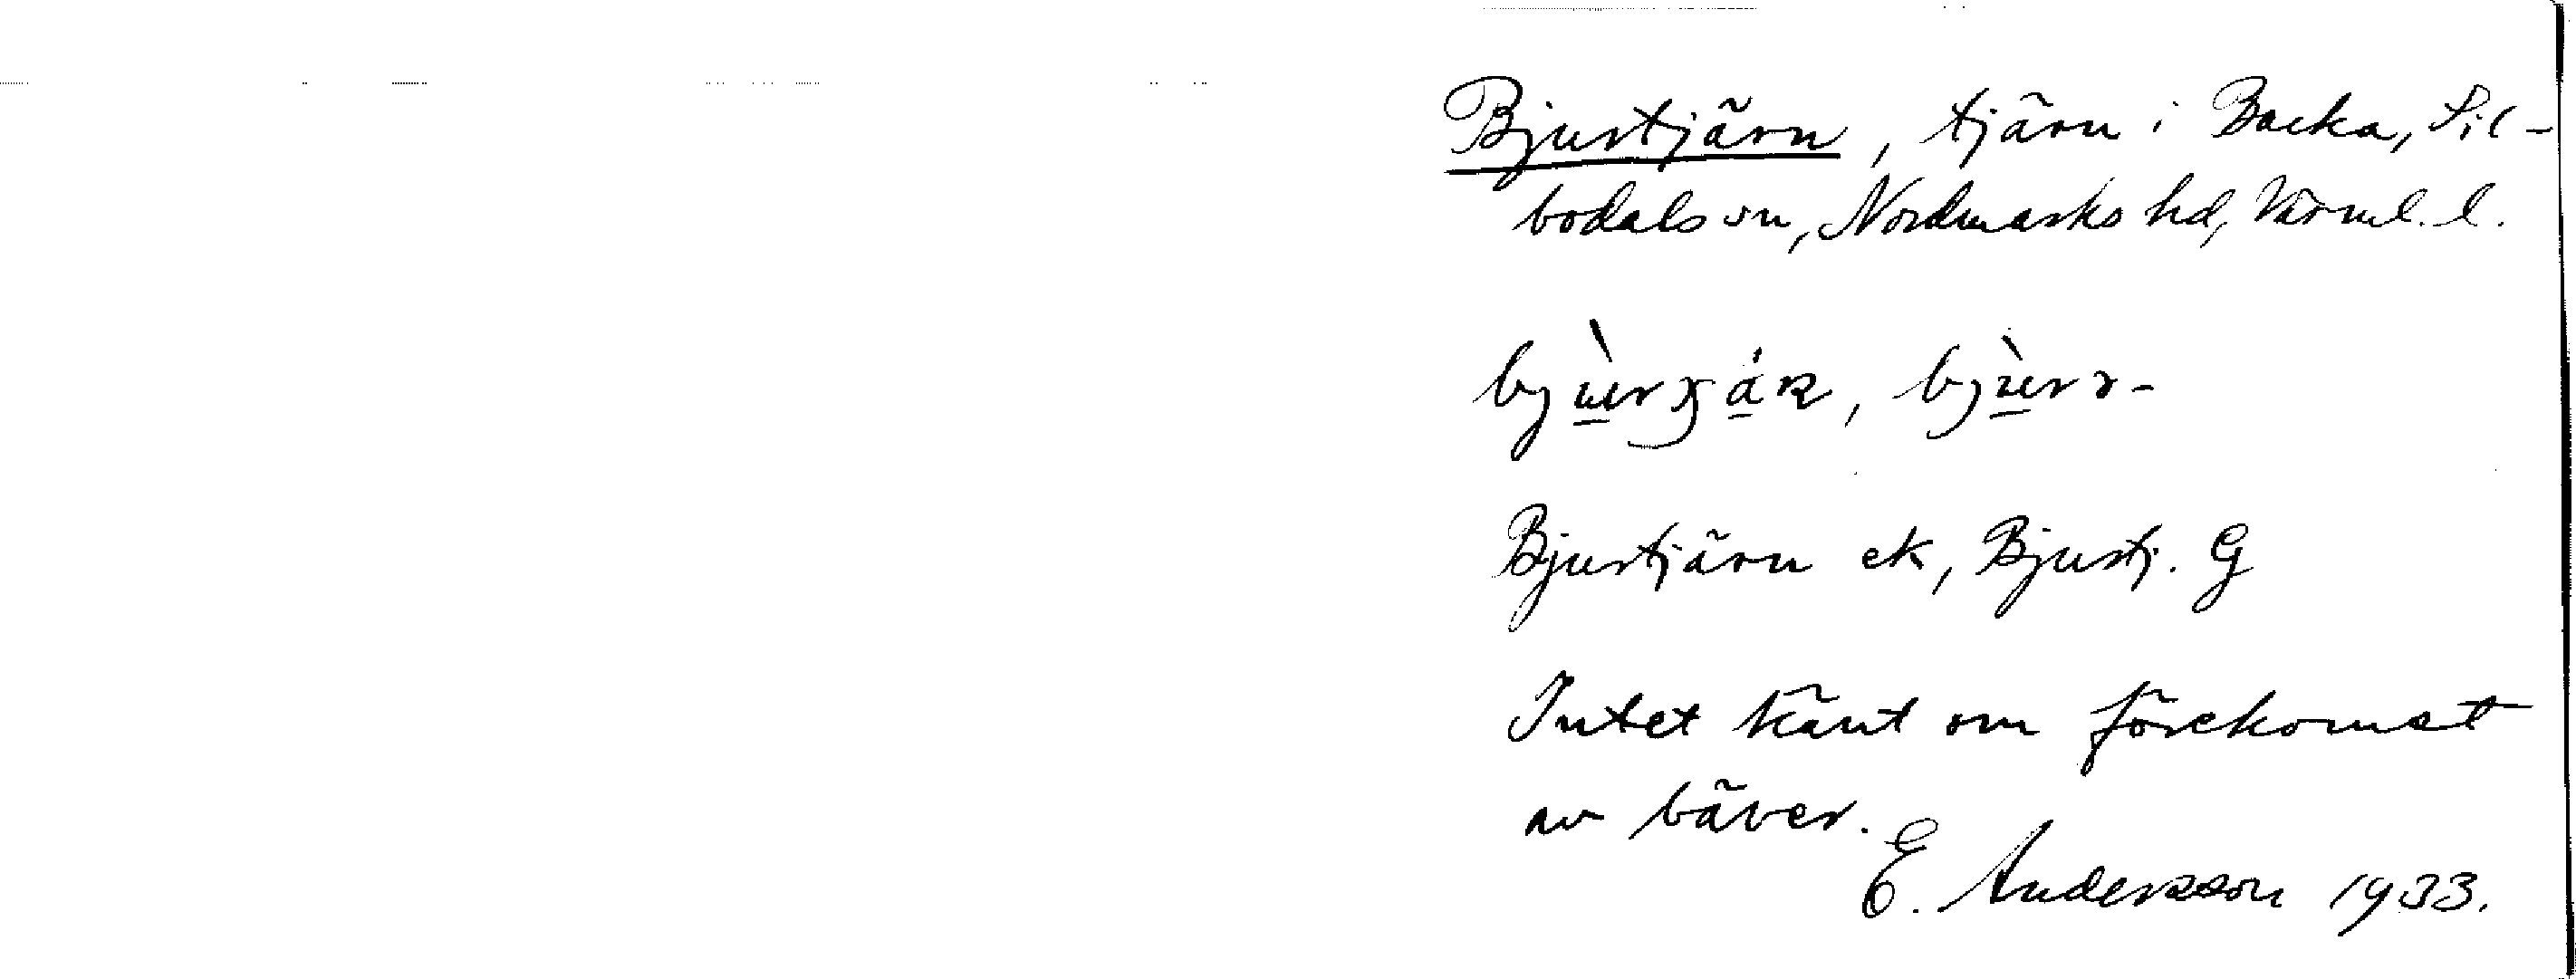 Bjurtjärn, tjärn i Backa, Sil-
bodals sn, Nordmarks hd, Värml. l.
Bjurtjärn ek, Bjurtj. G
Intet känt om förekomst
av bäver.
E. Andersson 1933.